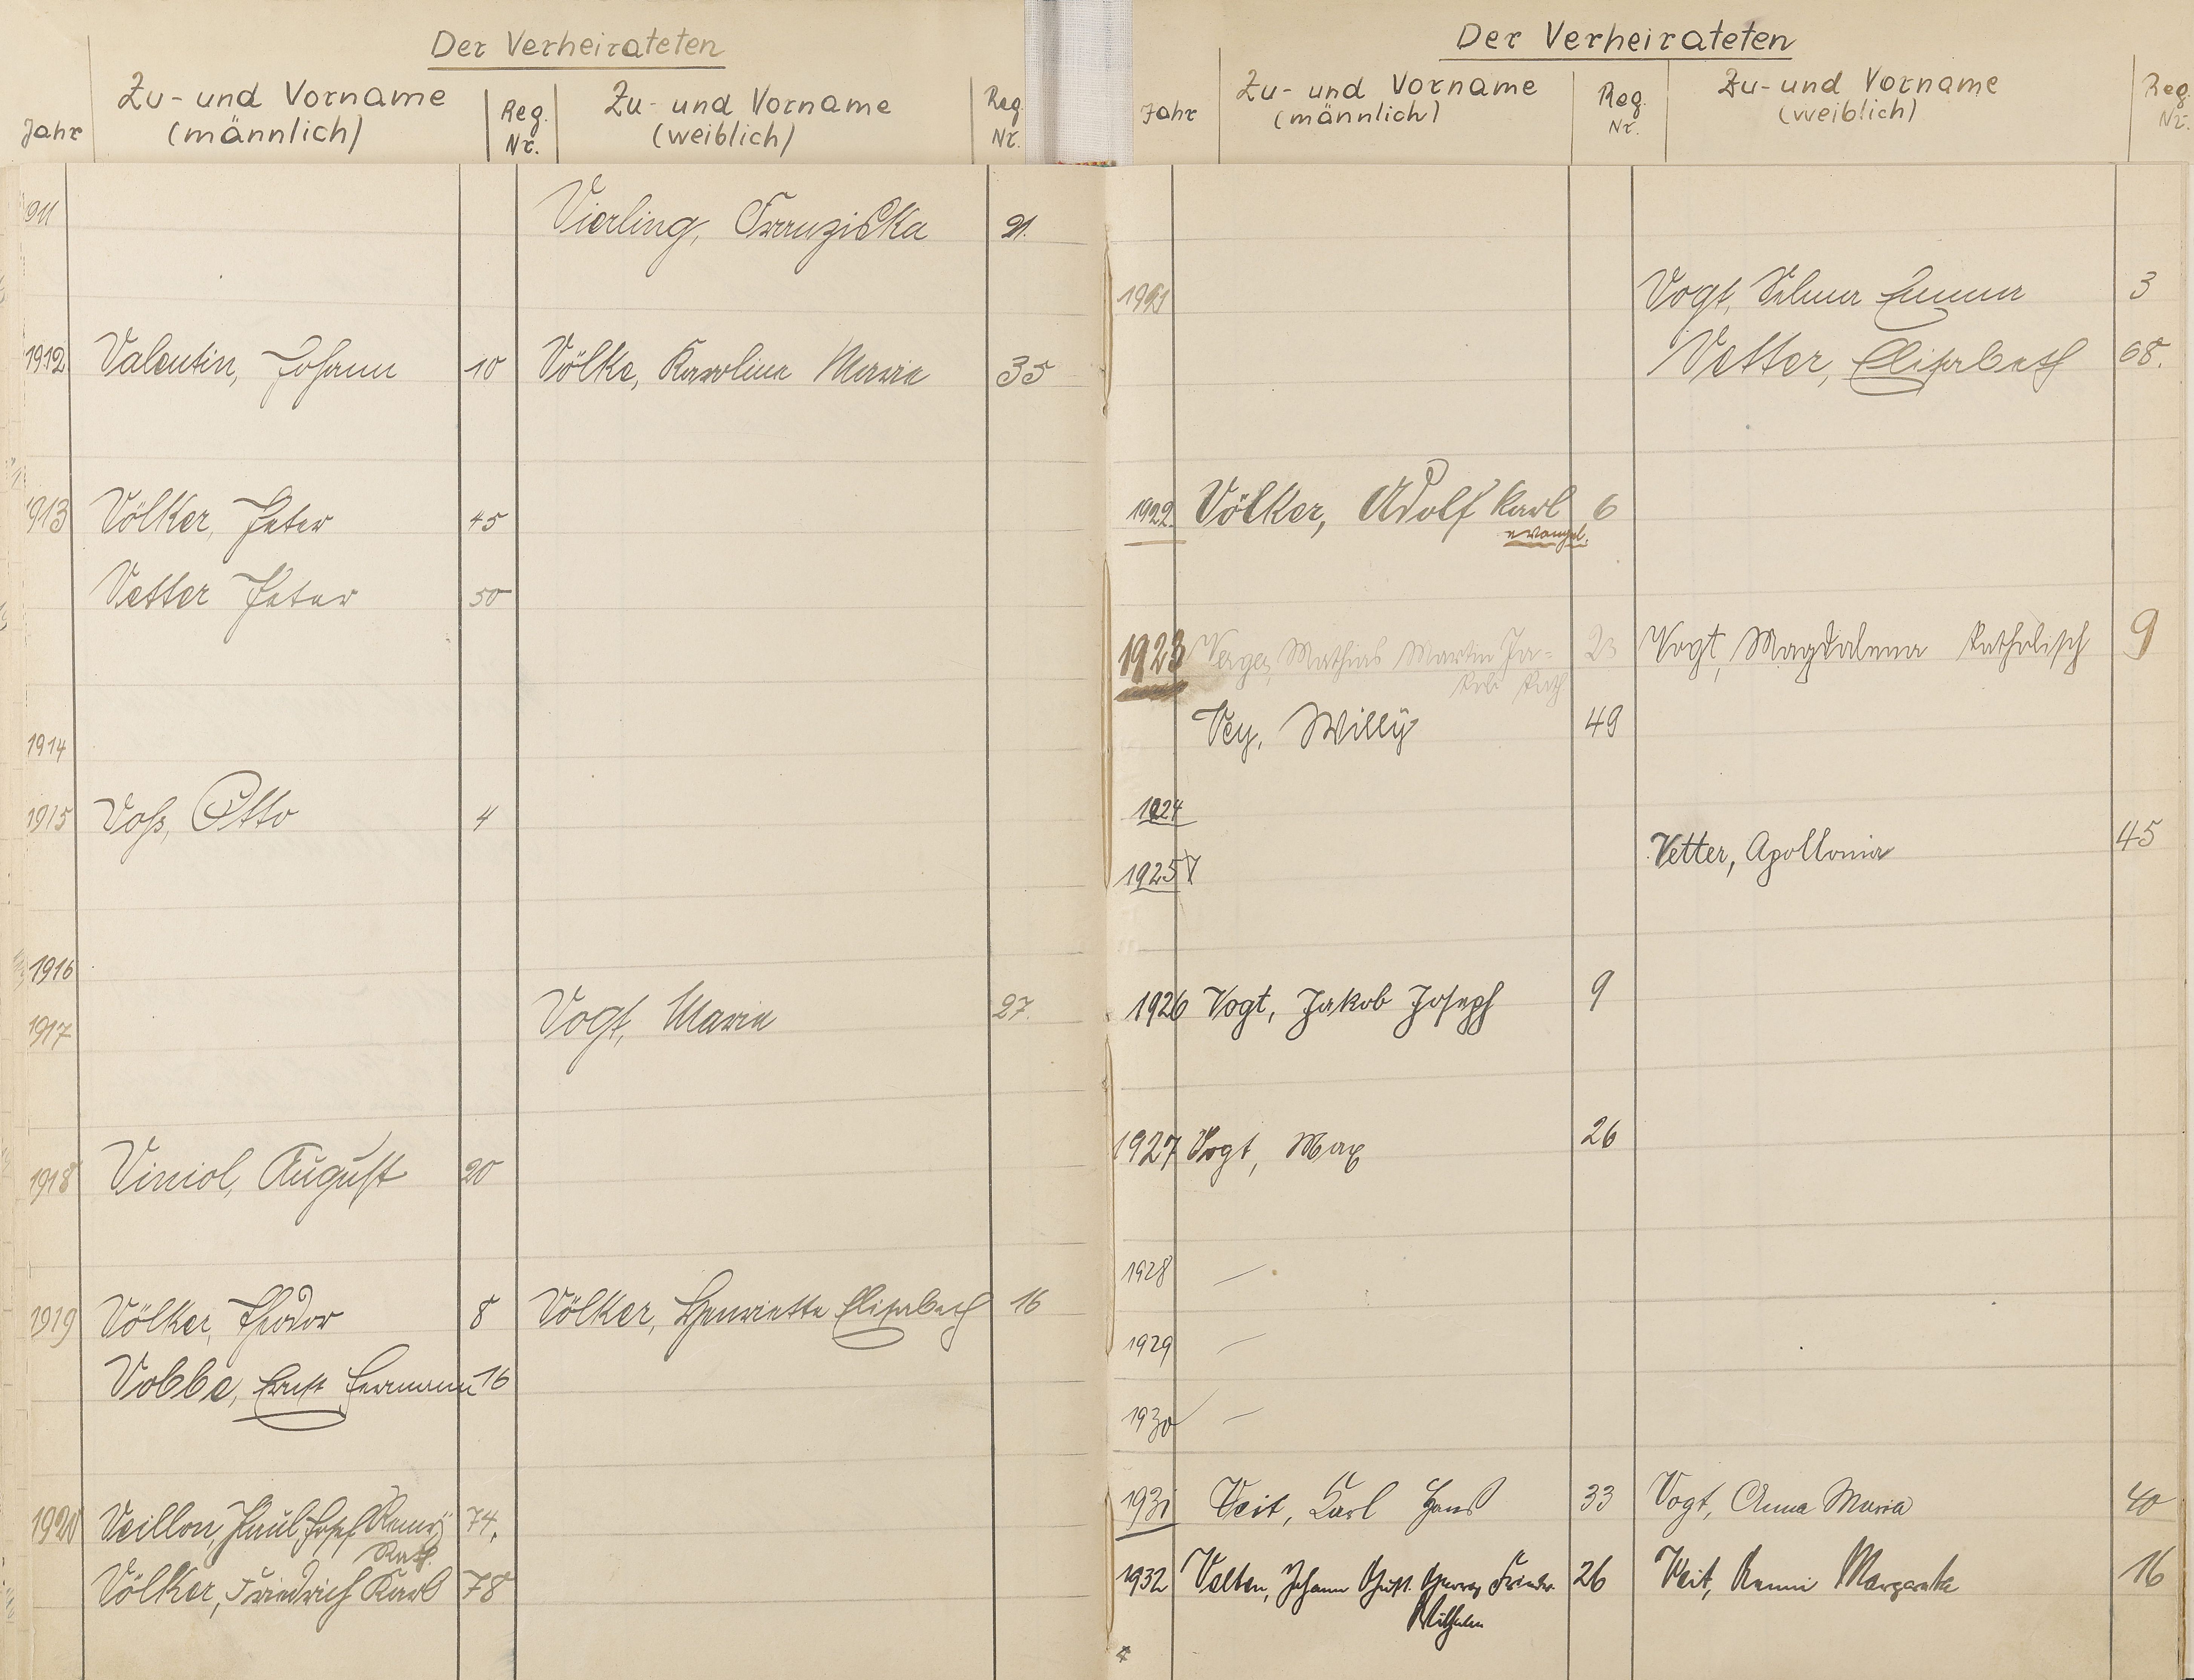 Der Verheirateten
Jahr Zu- und Vorname (männlich) Reg. Nr. Zu- und Vorname (weiblich) Reg. Nr.
1911 Vierling, Franziska 21.
1912 Valentin, Johann 10 Völke, Karolina Maria 35
1913 Völker, Peter 45
Vetter Peter 50
1914
1915 Voß, Otto 4
1916
1917 Vogt, Maria 27.
1918 Viniol, August 20
1919 Völker, Theodor 8 Völker, Henriette Elisabeth 16
Vobbe, Ernst Hermann 16
1920 Veillon, Paul Josef Remy 74.
Kath.
Völker, Friedrich Karl 78
Der Verheirateten
Jahr Zu- und Vorname (männlich) Reg. Nr. Zu- und Vorname (weiblich) Reg. Nr.
1921 Vogt, Selma Emma 3
Vetter, Elisabeth 68.
1922. Völker, Adolf Karl 6
evangel.
1923 Mathias Martin Ja= 23 Vogt, Magdalena katholisch 9
kob Kath
Vey, Willÿ 49
1924
Vetter, Apollonia 45
1925
1926 Vogt, Jakob Joseph 9
1927 Vogt, Max 26
1928 —
1929 —
1930 —
1931 Veit, Karl Hans 33 Vogt, Anna Maria 40
1932 Velten, Johann 26 Veit, Anni Margareta 16
Wilhelm